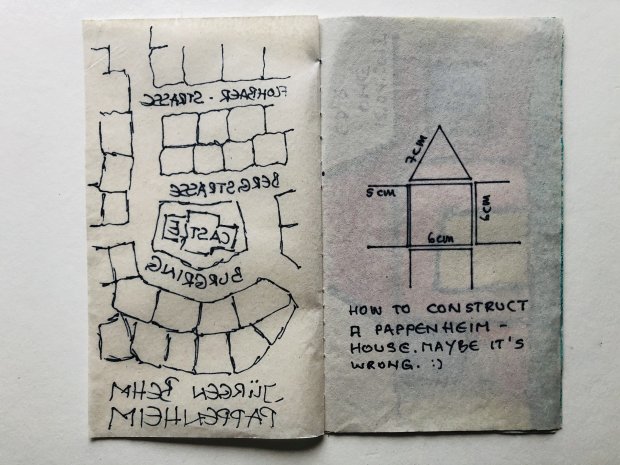 FLOHBAER-STRASSE
BERGSTRASSE
CASTLE
BURGRING
JÜRGEN BEHM
PAPPENHEIM
7cm
5 cm
6cm
6cm
HOW TO CONSTRUCT
A PAPPENHEIM -
HOUSE. MAYBE IT'S
WRONG. :)